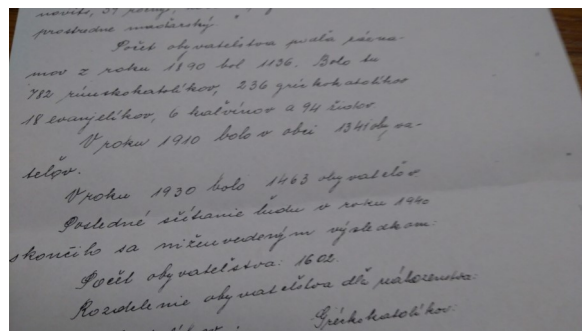 prostredne maďarský."
Počet obyvateľstva podľa zázna-
mov z roku 1890 bol 1136. Bolo tu
782 rímskokatolíkov, 236 gréckokatolíkov
18 evanjelikov, 6 kalvínov a 94 židov
V roku 1910 bolo v obci 1341 obyva-
teľov.
V roku 1930 bolo 1463 obyvateľov
Posledné sčítanie ľudu v roku 1940
skončilo sa nižeuvedeným výsledkom:
Počet obyvateľstva: 1602.
Rozdelenie obyvateľstva dľa náboženstva:
Gréckokatolíkov: